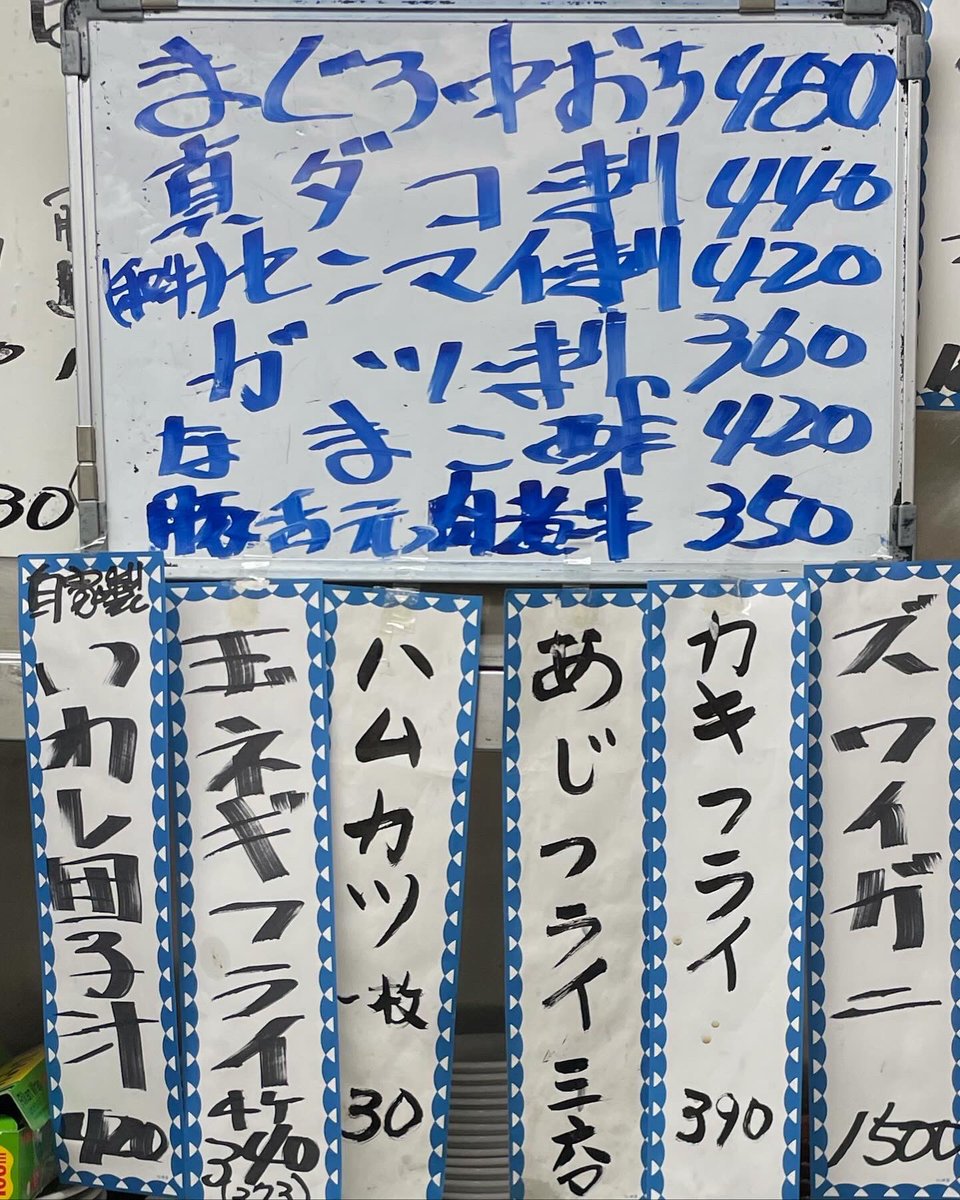 まぐろ中おち 480
真ダコ刺 440
センマイ刺 420
ガツ刺 360
なまこ酢 420
豚 350
ズワイガニ 1500
カキフライ 390
あじフライ 三六〇
ハムカツ 一枚 30
玉ネギフライ 4ケ
340
(373)
自家製
いわし団子汁 420